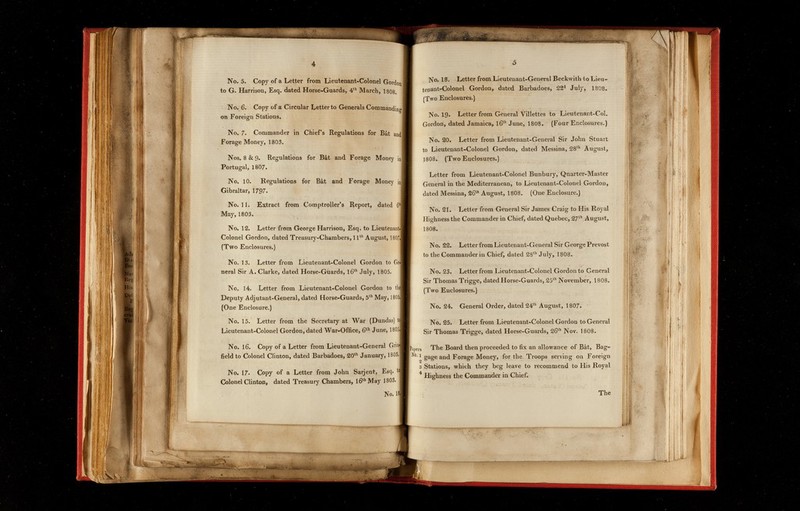 4
No. 5. Copy of a Letter from Lieutenant-Colonel Gordon
to G. Harrison, Esq. dated Horse-Guards, 4th March, 1808.
No. 6. Copy of a Circular Letter to Generals Commanding
on Foreign Stations.
No. 7. Commander in Chief's Regulations for Bât and
Forage Money, 1803.
Nos. 8 & 9. Regulations for Bât and Forage Money in
Portugal, 1807.
No. 10. Regulations for Bât and Forage Money in
Gibraltar, 1797.
No. 11. Extract from Comptroller's Report, dated
May, 1803.
No. 12. Letter from George Harrison, Esq. to Lieutenant
Colonel Gordon, dated Treasury-Chambers, 11th August, 1807.
(Two Enclosures.)
No. 13. Letter from Lieutenant-Colonel Gordon to Ge
neral Sir A. Clarke, dated Horse-Guards, 16th July, 1805.
No. 14. Letter from Lieutenant-Colonel Gordon to the
Deputy Adjutant-General, dated Horse-Guards, 5th May,
(One Enclosure.)
No. 15. Letter from the Secretary at War (Dundas) to
Lieutenant-Colonel Gordon, dated War-Office, 6th June,
No. 16. Copy of a Letter from Lieutenant-General Grin
field to Colonel Clinton, dated Barbadoes, 20th January, 1803.
No. 17. Copy of a Letter from John Sarjent, Esq. to
Colonel Clinton, dated Treasury Chambers, 16th May 1803.
No. 18
5
No. 18. Letter from Lieutenant-General Beckwith to Lieu-
tenant-Colonel Gordon, dated Barbadoes, 22d July, 1808.
(Two Enclosures.)
No. 19. Letter from General Villettes to Lieutenant-Col.
Gordon, dated Jamaica, 16th June, 1808. (Four Enclosures.)
No. 20. Letter from Lieutenant-General Sir John Stuart
to Lieutenant-Colonel Gordon, dated Messina, 28th August,
1808. (Two Enclosures.)
Letter from Lieutenant-Colonel Bunbury, Quarter-Master
General in the Mediterranean, to Lieutenant-Colonel Gordon,
dated Messina, 26th August, 1808. (One Enclosure.)
No. 21. Letter from General Sir James Craig to His Royal
Highness the Commander in Chief, dated Quebec, 27th August,
1808.
No. 22. Letter from Lieutenant-General Sir George Prevost
to the Commander in Chief, dated 28th July, 1808.
No. 23. Letter from Lieutenant-Colonel Gordon to General
Sir Thomas Trigge, dated Horse-Guards, 25th November, 1808.
(Two Enclosures.)
No. 24. General Order, dated 24th August, 1807.
No. 25. Letter from Lieutenant-Colonel Gordon to General
Sir Thomas Trigge, dated Horse-Guards, 26th Nov. 1808.
Papers
No. 1
2
3
4
The Board then proceeded to fix an allowance of Bât, Bag-
gage and Forage Money, for the Troops serving on Foreign
Stations, which they beg leave to recommend to His Royal
Highness the Commander in Chief.
The